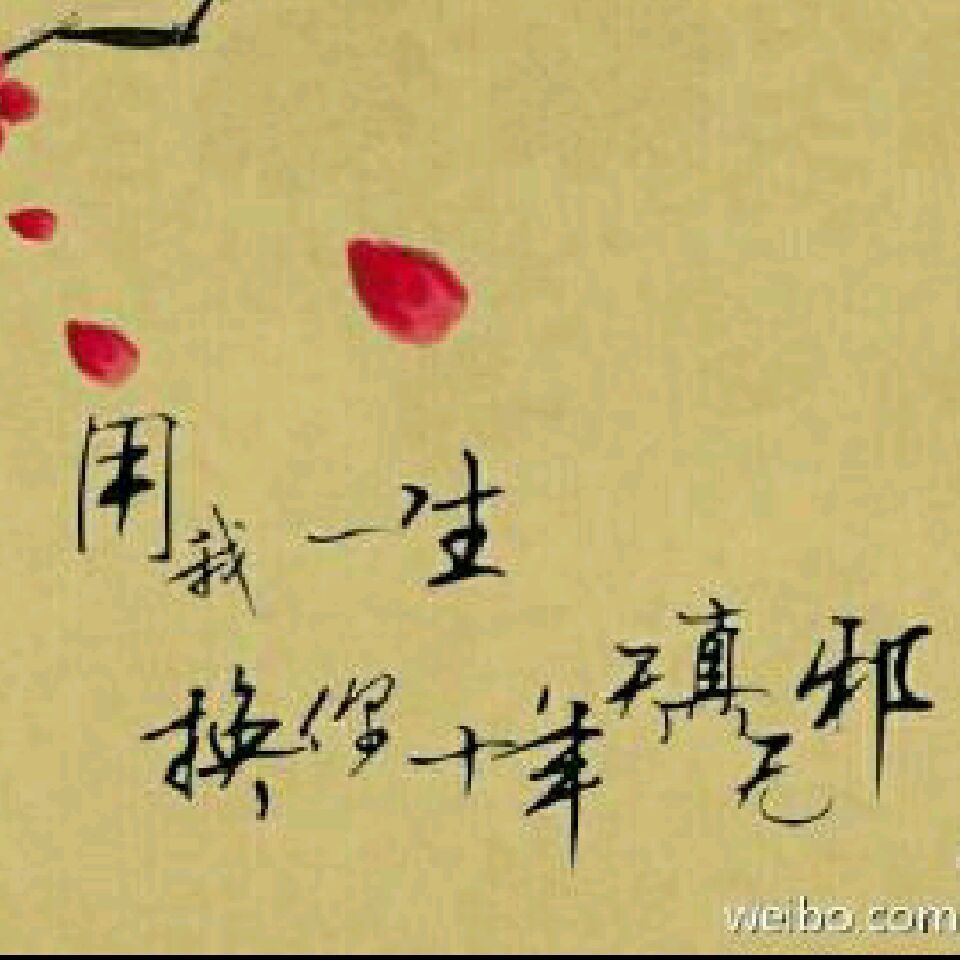 用我一生
换你十年天真无邪
weibo.com